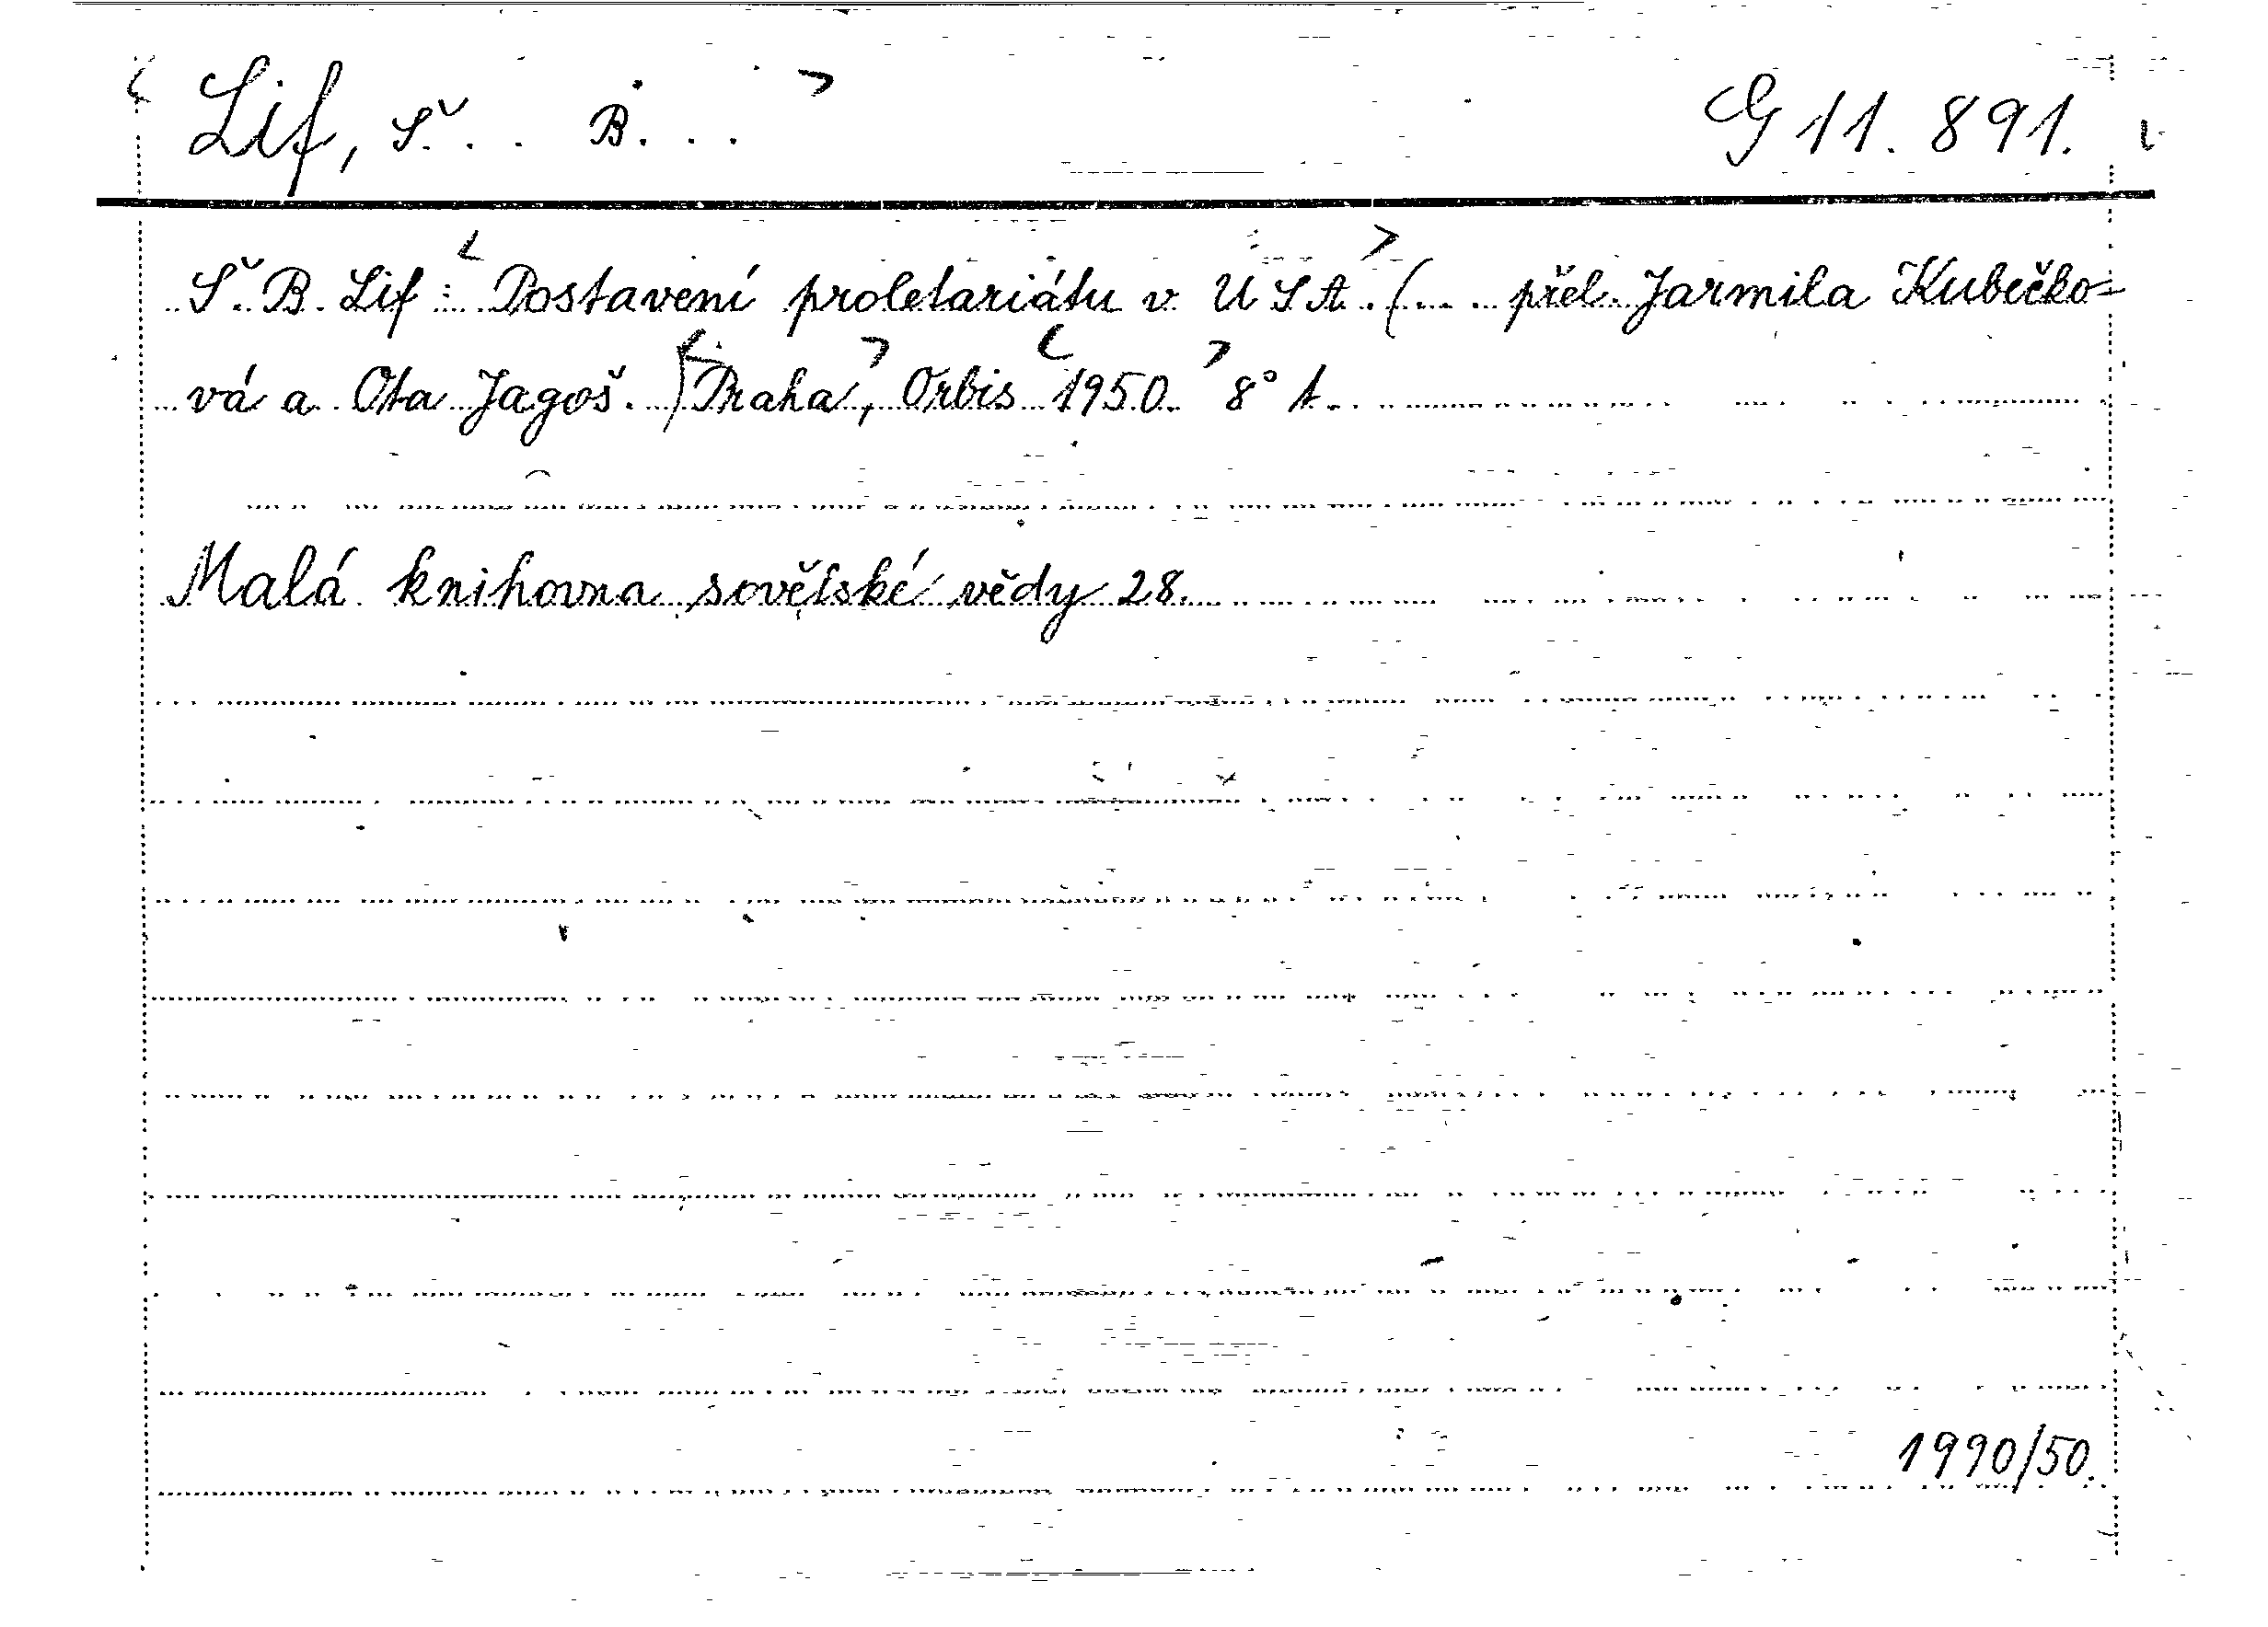 Lif, Š... B...
G 11.891.
Š. B. Lif: Postavení proletariátu v USA. (... přel. Jarmila Kubečko-
vá a Ota Jagoš.) Praha, Orbis 1950. 8° 1.
Malá knihovna sovětské vědy 28.
1990/50.